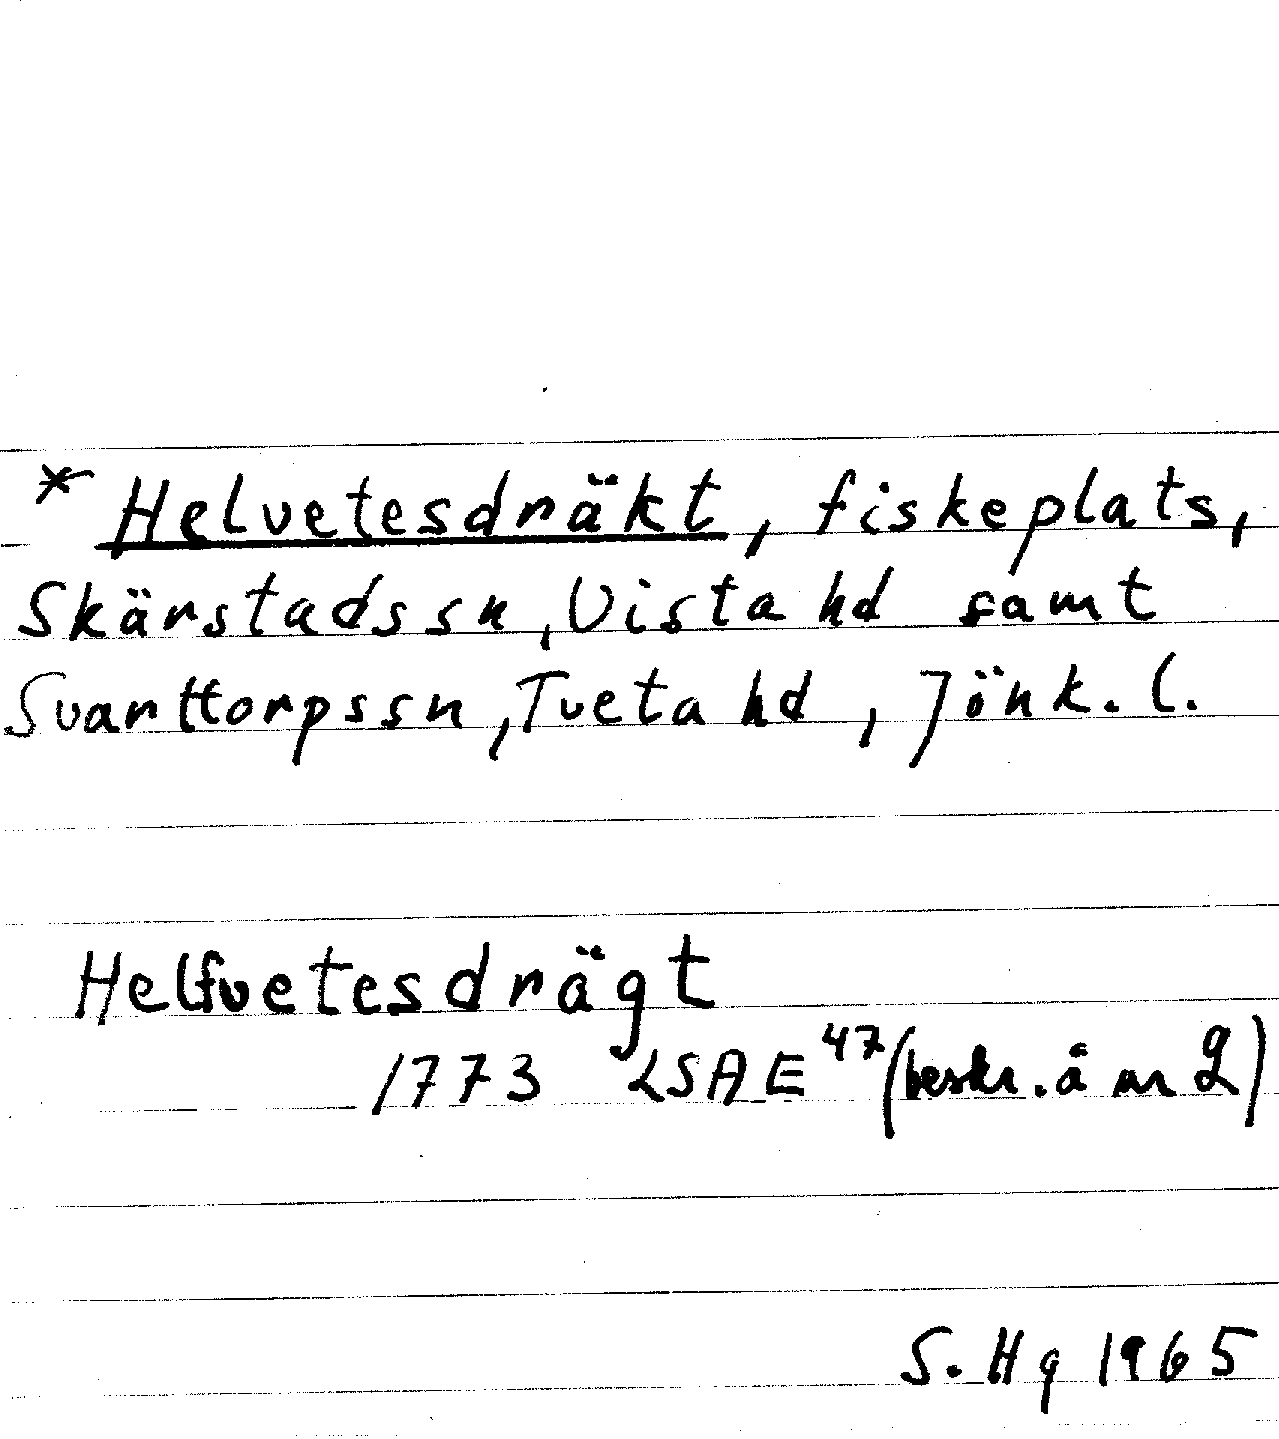 * Helvetesdräkt, fiskeplats,
Skärstads sn, Vista hd samt
Svarttorps sn, Tveta hd, Jönk. l.
Helfvetesdrägt
1773 LSA E 47 (beskr. å nr 2)
S. Hg 1965